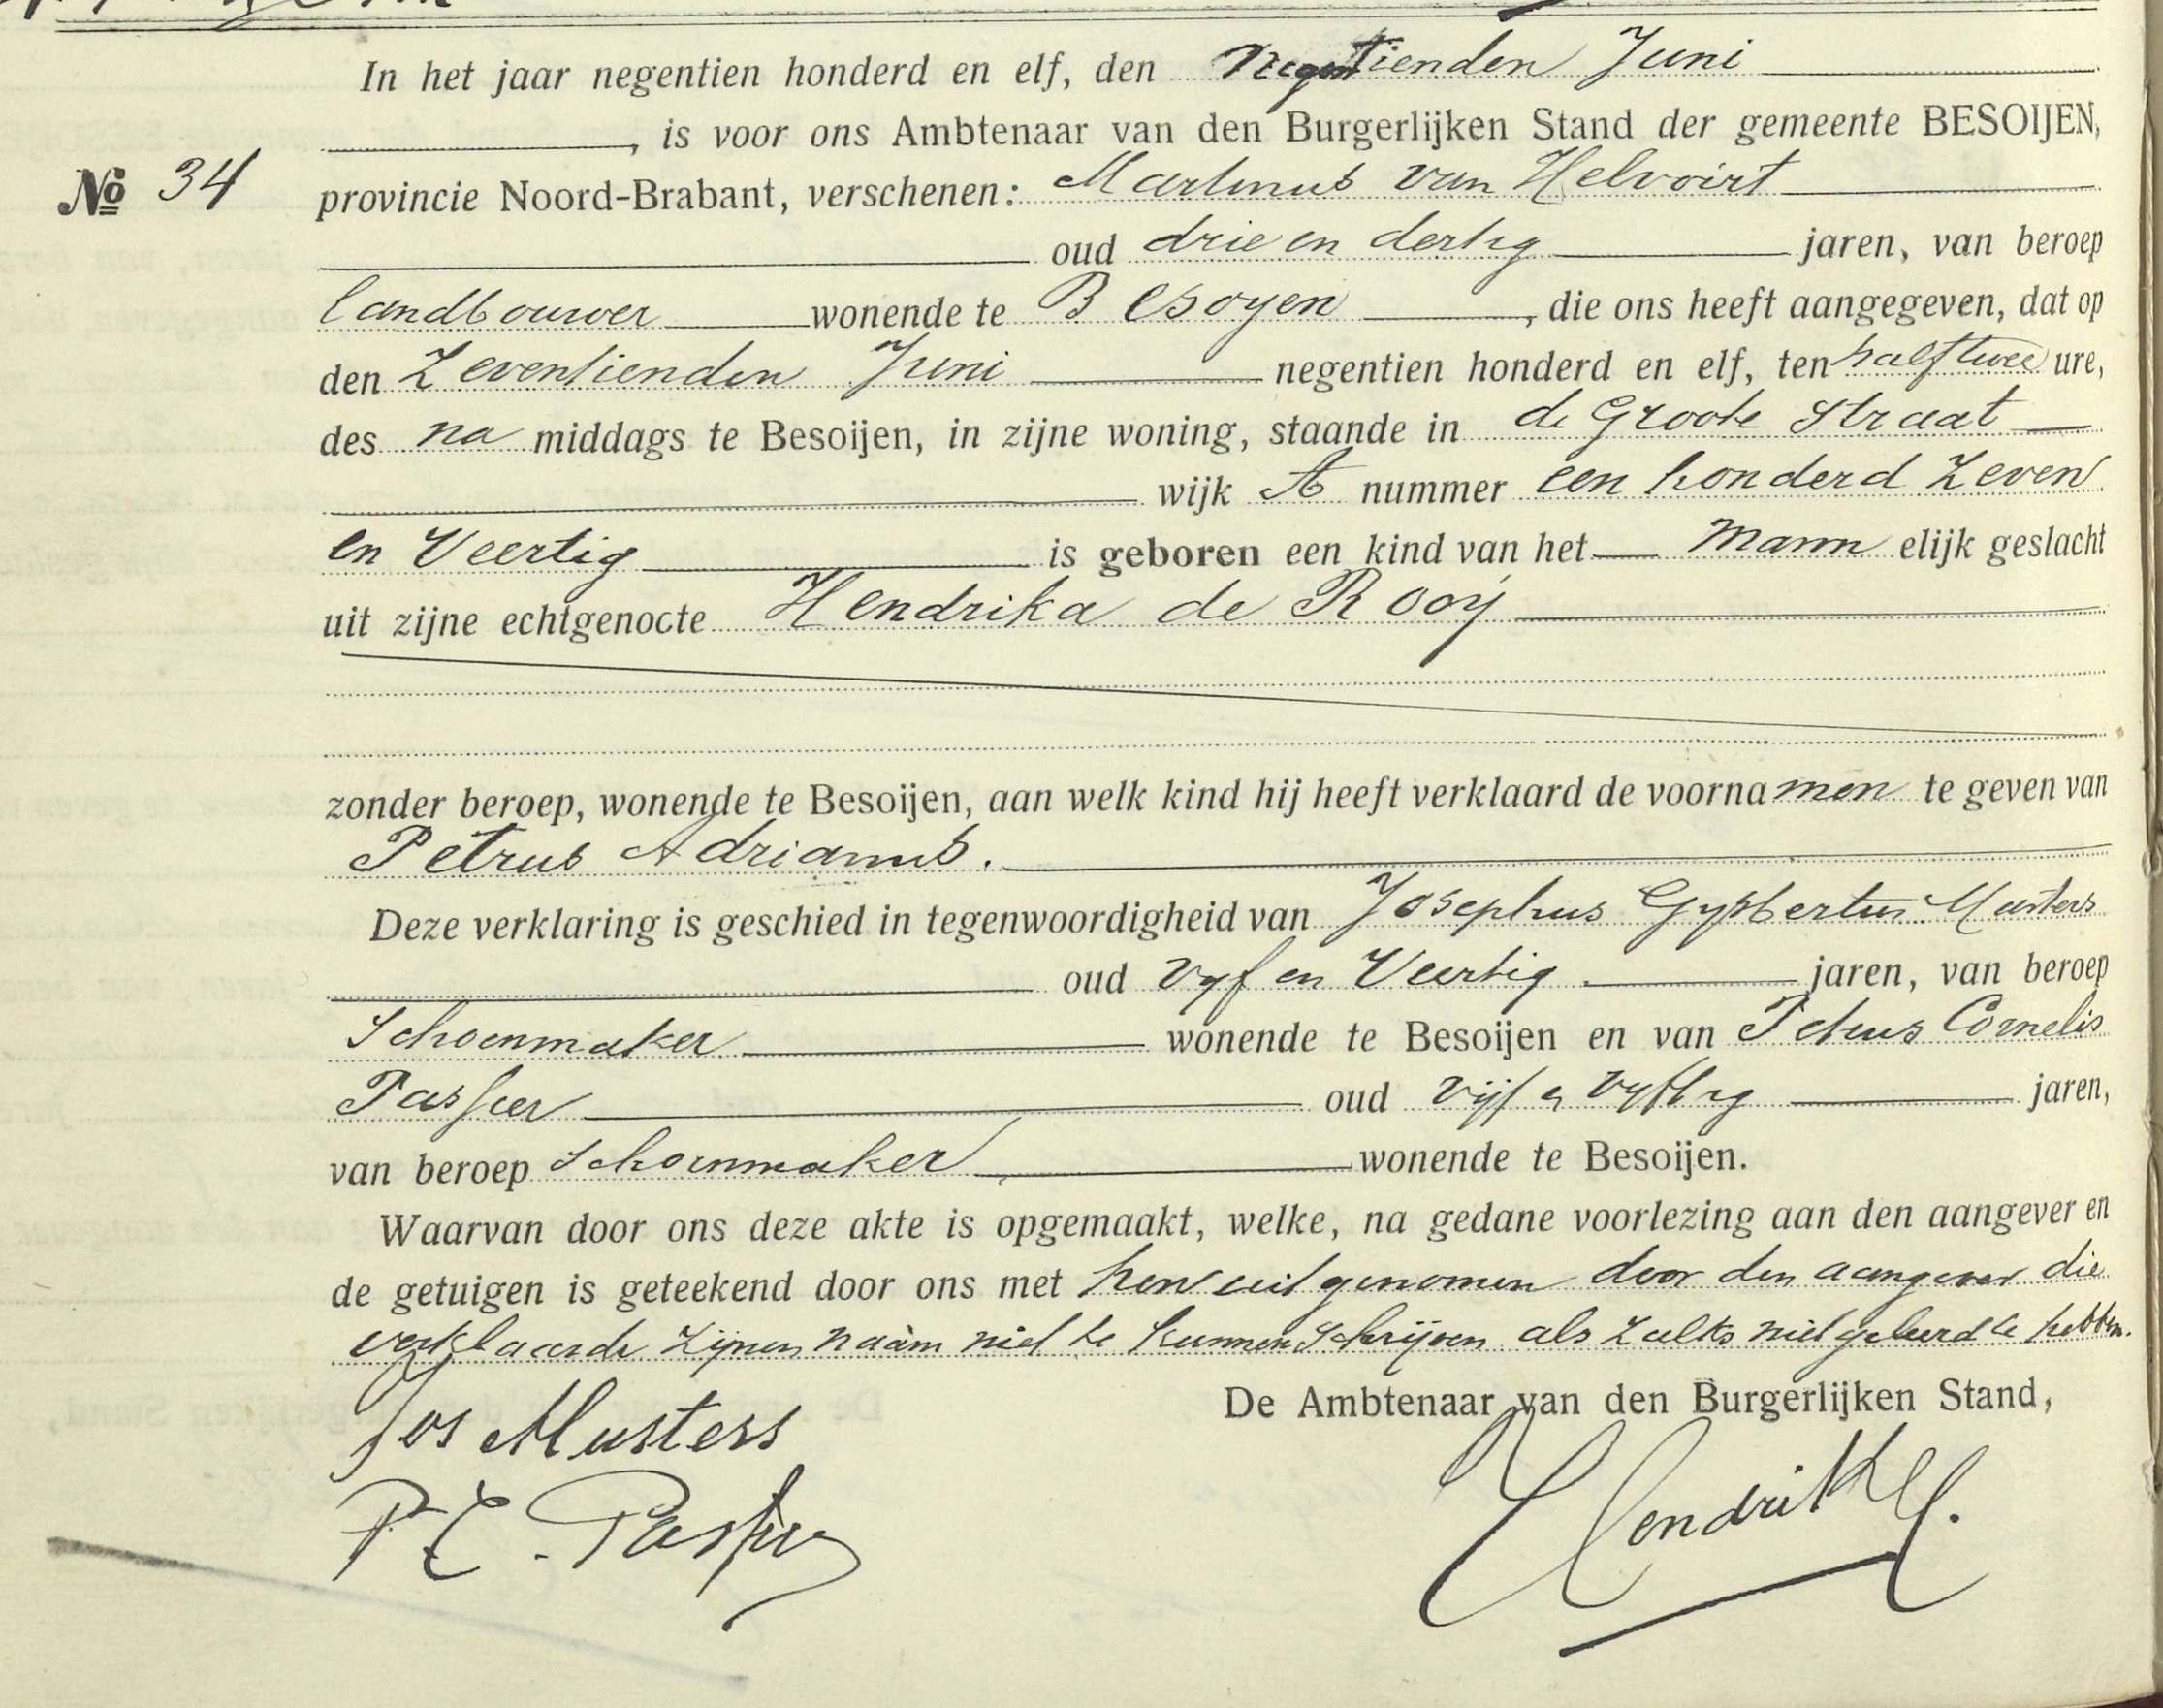 In het jaar negentien honderd en elf, den Negentienden Juni
, is voor ons Ambtenaar van den Burgerlijken Stand der gemeente BESOIJEN,
No 34 provincie Noord-Brabant, verschenen: Martinus van Helvoirt
oud drie en dertig jaren, van beroep
landbouwer wonende te Besoyen, die ons heeft aangegeven, dat op
den Zeventienden Juni negentien honderd en elf, ten half twee ure,
des na middags te Besoijen, in zijne woning, staande in de Groote Straat
wijk A nummer een honderd Zeven
en Veertig is geboren een kind van het Mann elijk geslacht
uit zijne echtgenoote Hendrika de Rooÿ
zonder beroep, wonende te Besoijen, aan welk kind hij heeft verklaard de voornamen te geven van
Petrus Adrianus.
Deze verklaring is geschied in tegenwoordigheid van Josephus Gysbertus Musters
oud vyf en Veertig jaren, van beroep
Schoenmaker wonende te Besoijen en van Petrus Cornelis
oud vijf en vyftig jaren,
van beroep Schoenmaker wonende te Besoijen.
Waarvan door ons deze akte is opgemaakt, welke, na gedane voorlezing aan den aangever en
de getuigen is geteekend door ons met hen uitgenomen door den aangever die
verklaarde zijnen naam niet te kunnen schrijven als zulks niet geleerd te hebben.
De Ambtenaar van den Burgerlijken Stand,
Jos Musters
P. C.